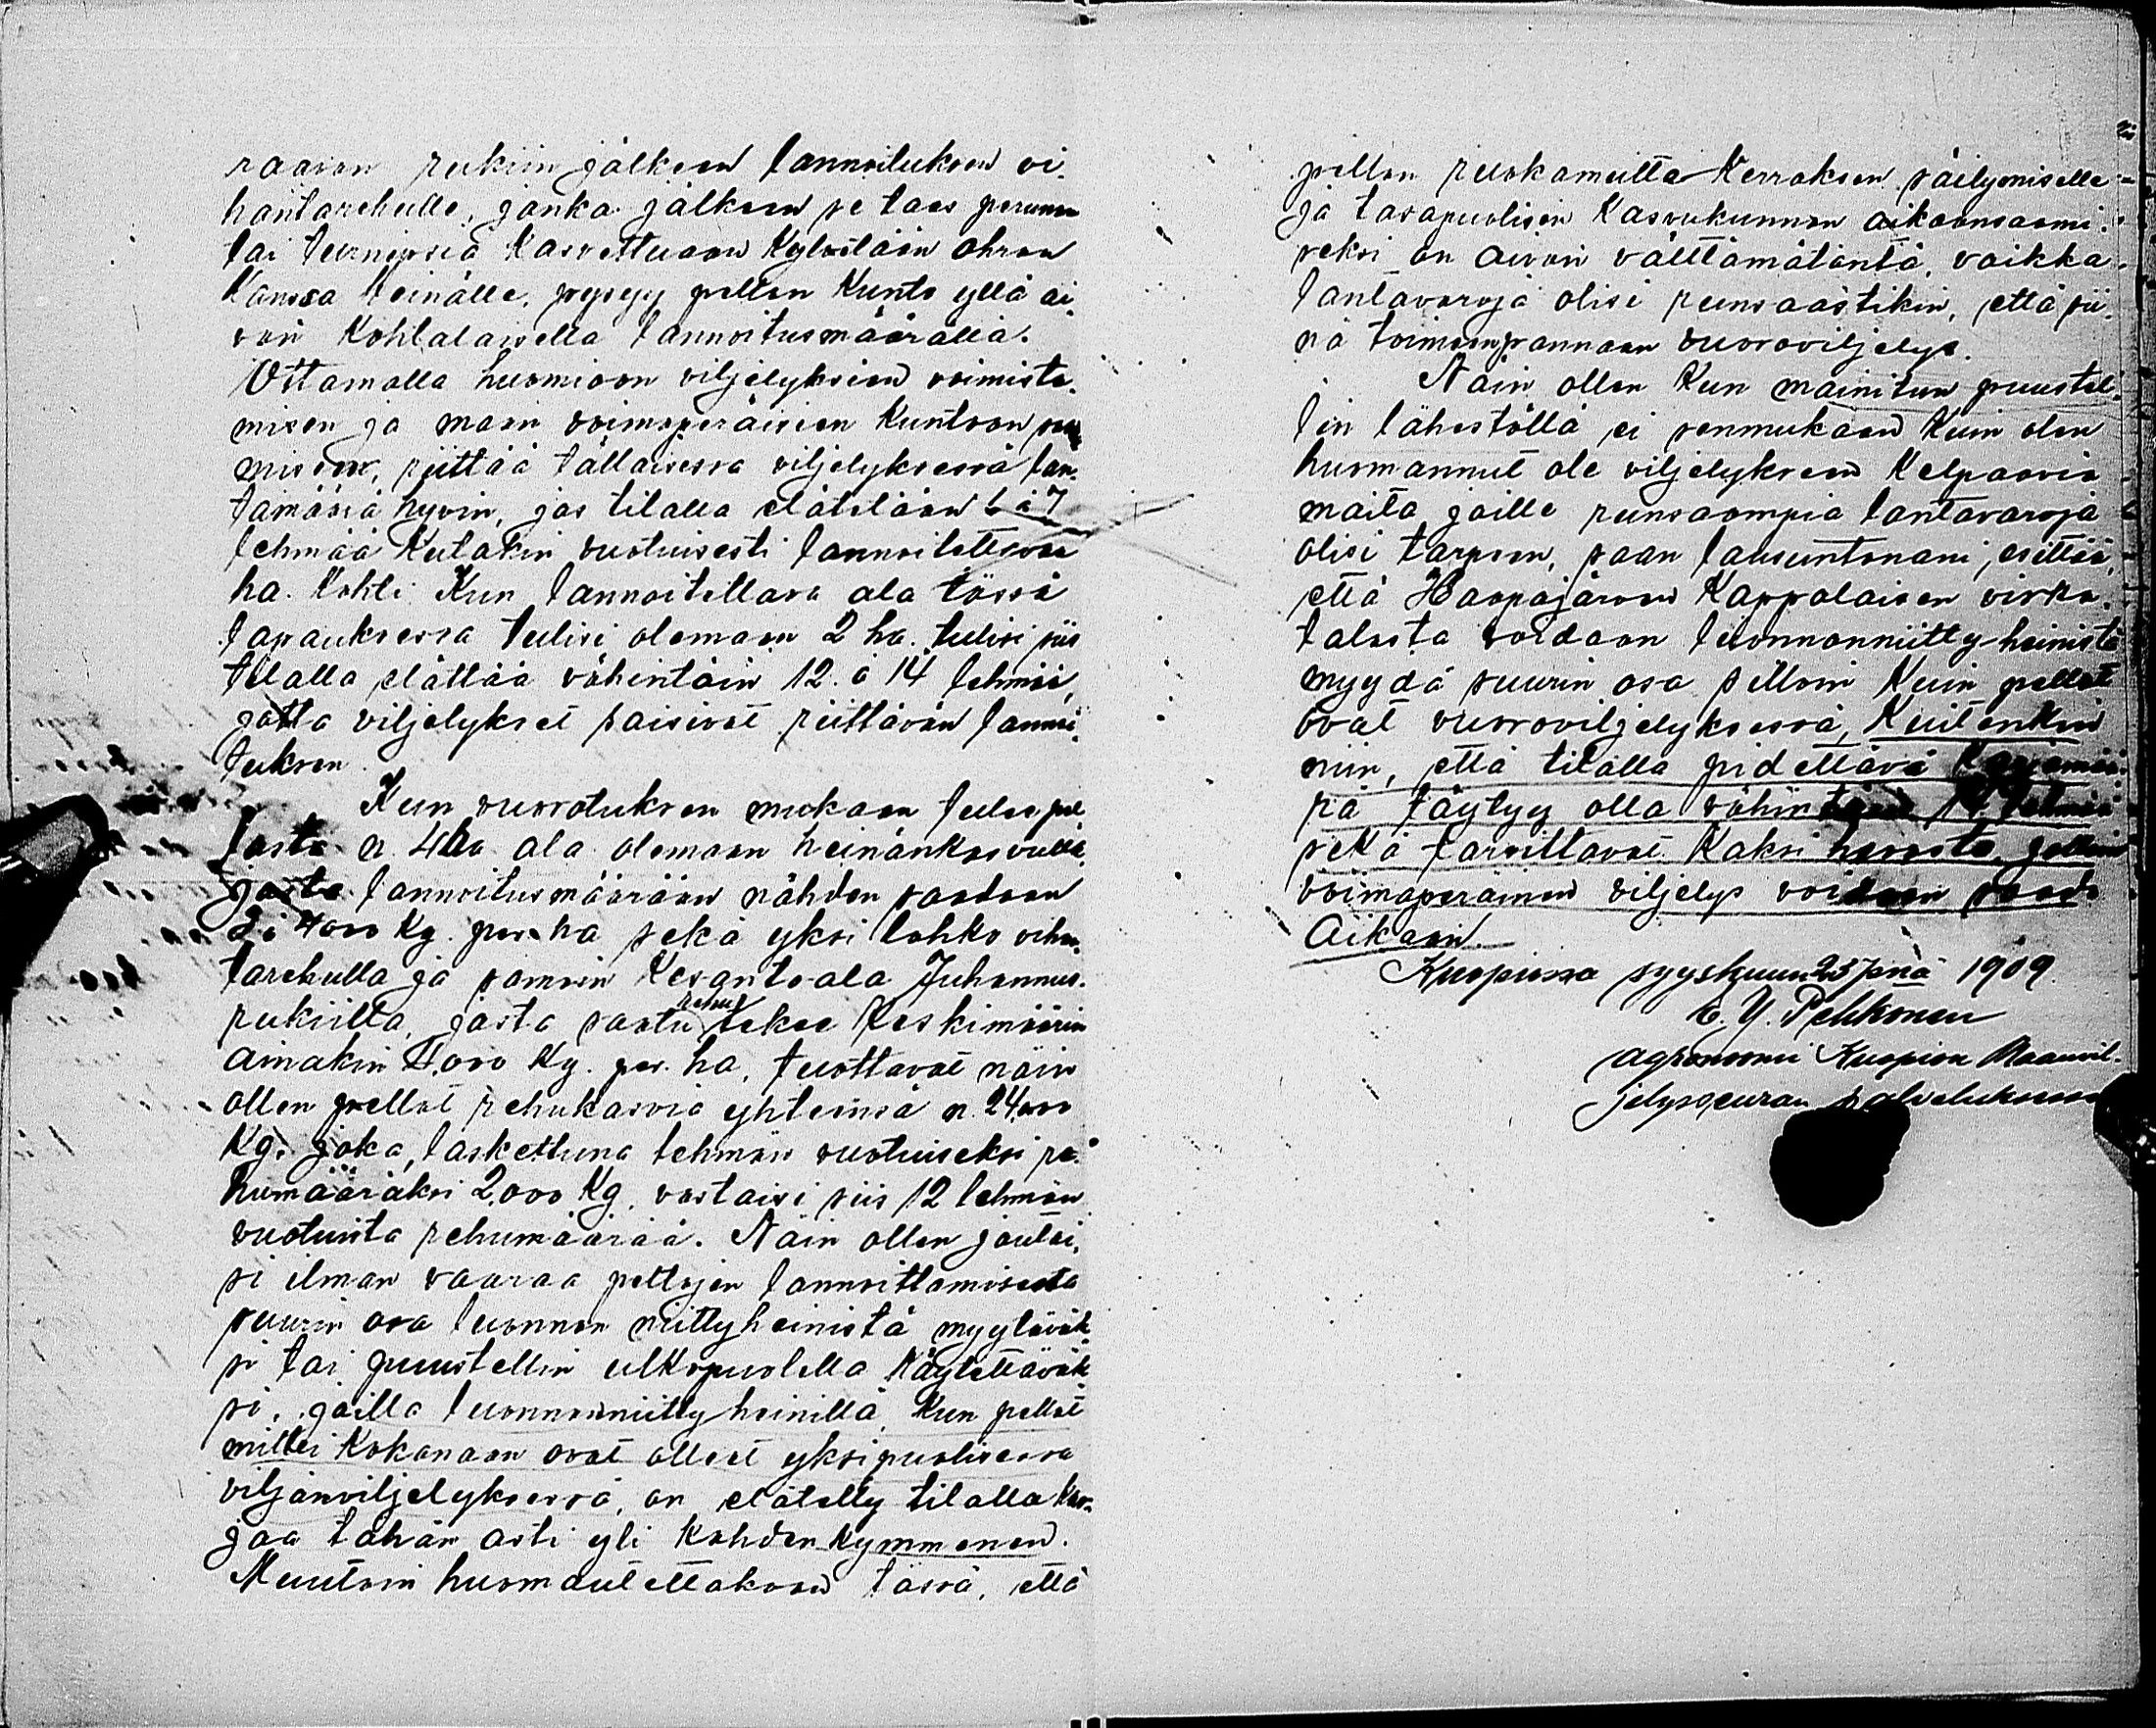 raavan rukiin jälkeen lannoituksen vi-
hantarehulle, jonka jälkeen se taas peruna
tai turnipsia kasvettuaan kylvetään ohran
kanssa heinälle, pysyy pellon kunto yllä ai-
van kohtalaisella lannoitusmäärällä.
Ottamalla huomioon viljelyksien voimista-
misen ja maan voimaperäiseen kuntoon
misen, riittää tällaisessa viljelyksessä lan-
tamäärä hyvin, jos tilalla elätetään 6 à 7
lehmää kutakin vuotuisesti lannoitettavaa
ha. kohti. Kun lannoitettava ala tässä
tapauksessa tulisi olemaan 2 ha. tulisi siis
tilalla elättää vähintäin 12 à 14 lehmää,
jotta viljelykset saisivat riittävän lannoi-
tuksen.
Kun vuorotuksen mukaan tulee pel
losta n. 4 ha ala olemaan heinänkasvulla,
josta lannoitusmäärään nähden saadaan
4000 kg. per ha sekä yksi lohko vihan-
tarehulla ja samoin kesantoala Juhannus-
rukiilla, josta saatu rehu tekee keskimäärin
ainakin 4,000 kg. per. ha, tuottavat näin
ollen pellot rehukasvia yhteensä n. 24000
kg. joka, laskettuna lehmän vuotuiseksi re-
humääräksi 2,000 kg. vastaisi siis 12 lehmän
vuotuista rehumäärää. Näin ollen joutai-
si ilman vaaraa peltojen lannoittamisesta
suurin osa luonnon niittyheinistä myytäväk-
si tai puustellin ulkopuolella käytettäväk-
si, joilla luonnonniittyheinillä, kun pellot
miltei kokonaan ovat olleet yksipuolisessa
viljanviljelyksessä, on elätetty tilalla kar-
jaa tähän asti yli kahdenkymmenen.
Muutoin huomautettakoon tässä, että
pellon ruokamulta kerroksen säilymiselle
ja tasapuolisen kasvukunnon aikaansaami-
seksi on aivan välttämätöntä, vaikka
lantavaroja olisi runsaastikin, että sii-
nä toimeenpannaan vuoroviljelys.
Näin ollen kun mainitun puustel-
lin lähestöllä ei senmukaan kuin olen
huomannut ole viljelykseen kelpaavia
maita joille runsaampia lantavaroja
olisi tarpeen, saan lausuntonani esittää,
että Haapajärven Kappalaisen virka-
talosta voidaan luonnonniittyheinistä
myydä suurin osa silloin kuin pellot
ovat vuoroviljelyksessä, kuitenkin
niin, että tilalla pidettävä karjamää-
rä täytyy olla vähintään 14 lehmää
sekä tarvittavat kaksi hevosta, jolloin
voimaperäinen viljelys voidaan saada
Aikaan.
Kuopiossa syyskuun 23 p:nä 1909.
E. Y. Pehkonen
agronoomi Kuopion Maanvil-
jelysseuran palveluksessa